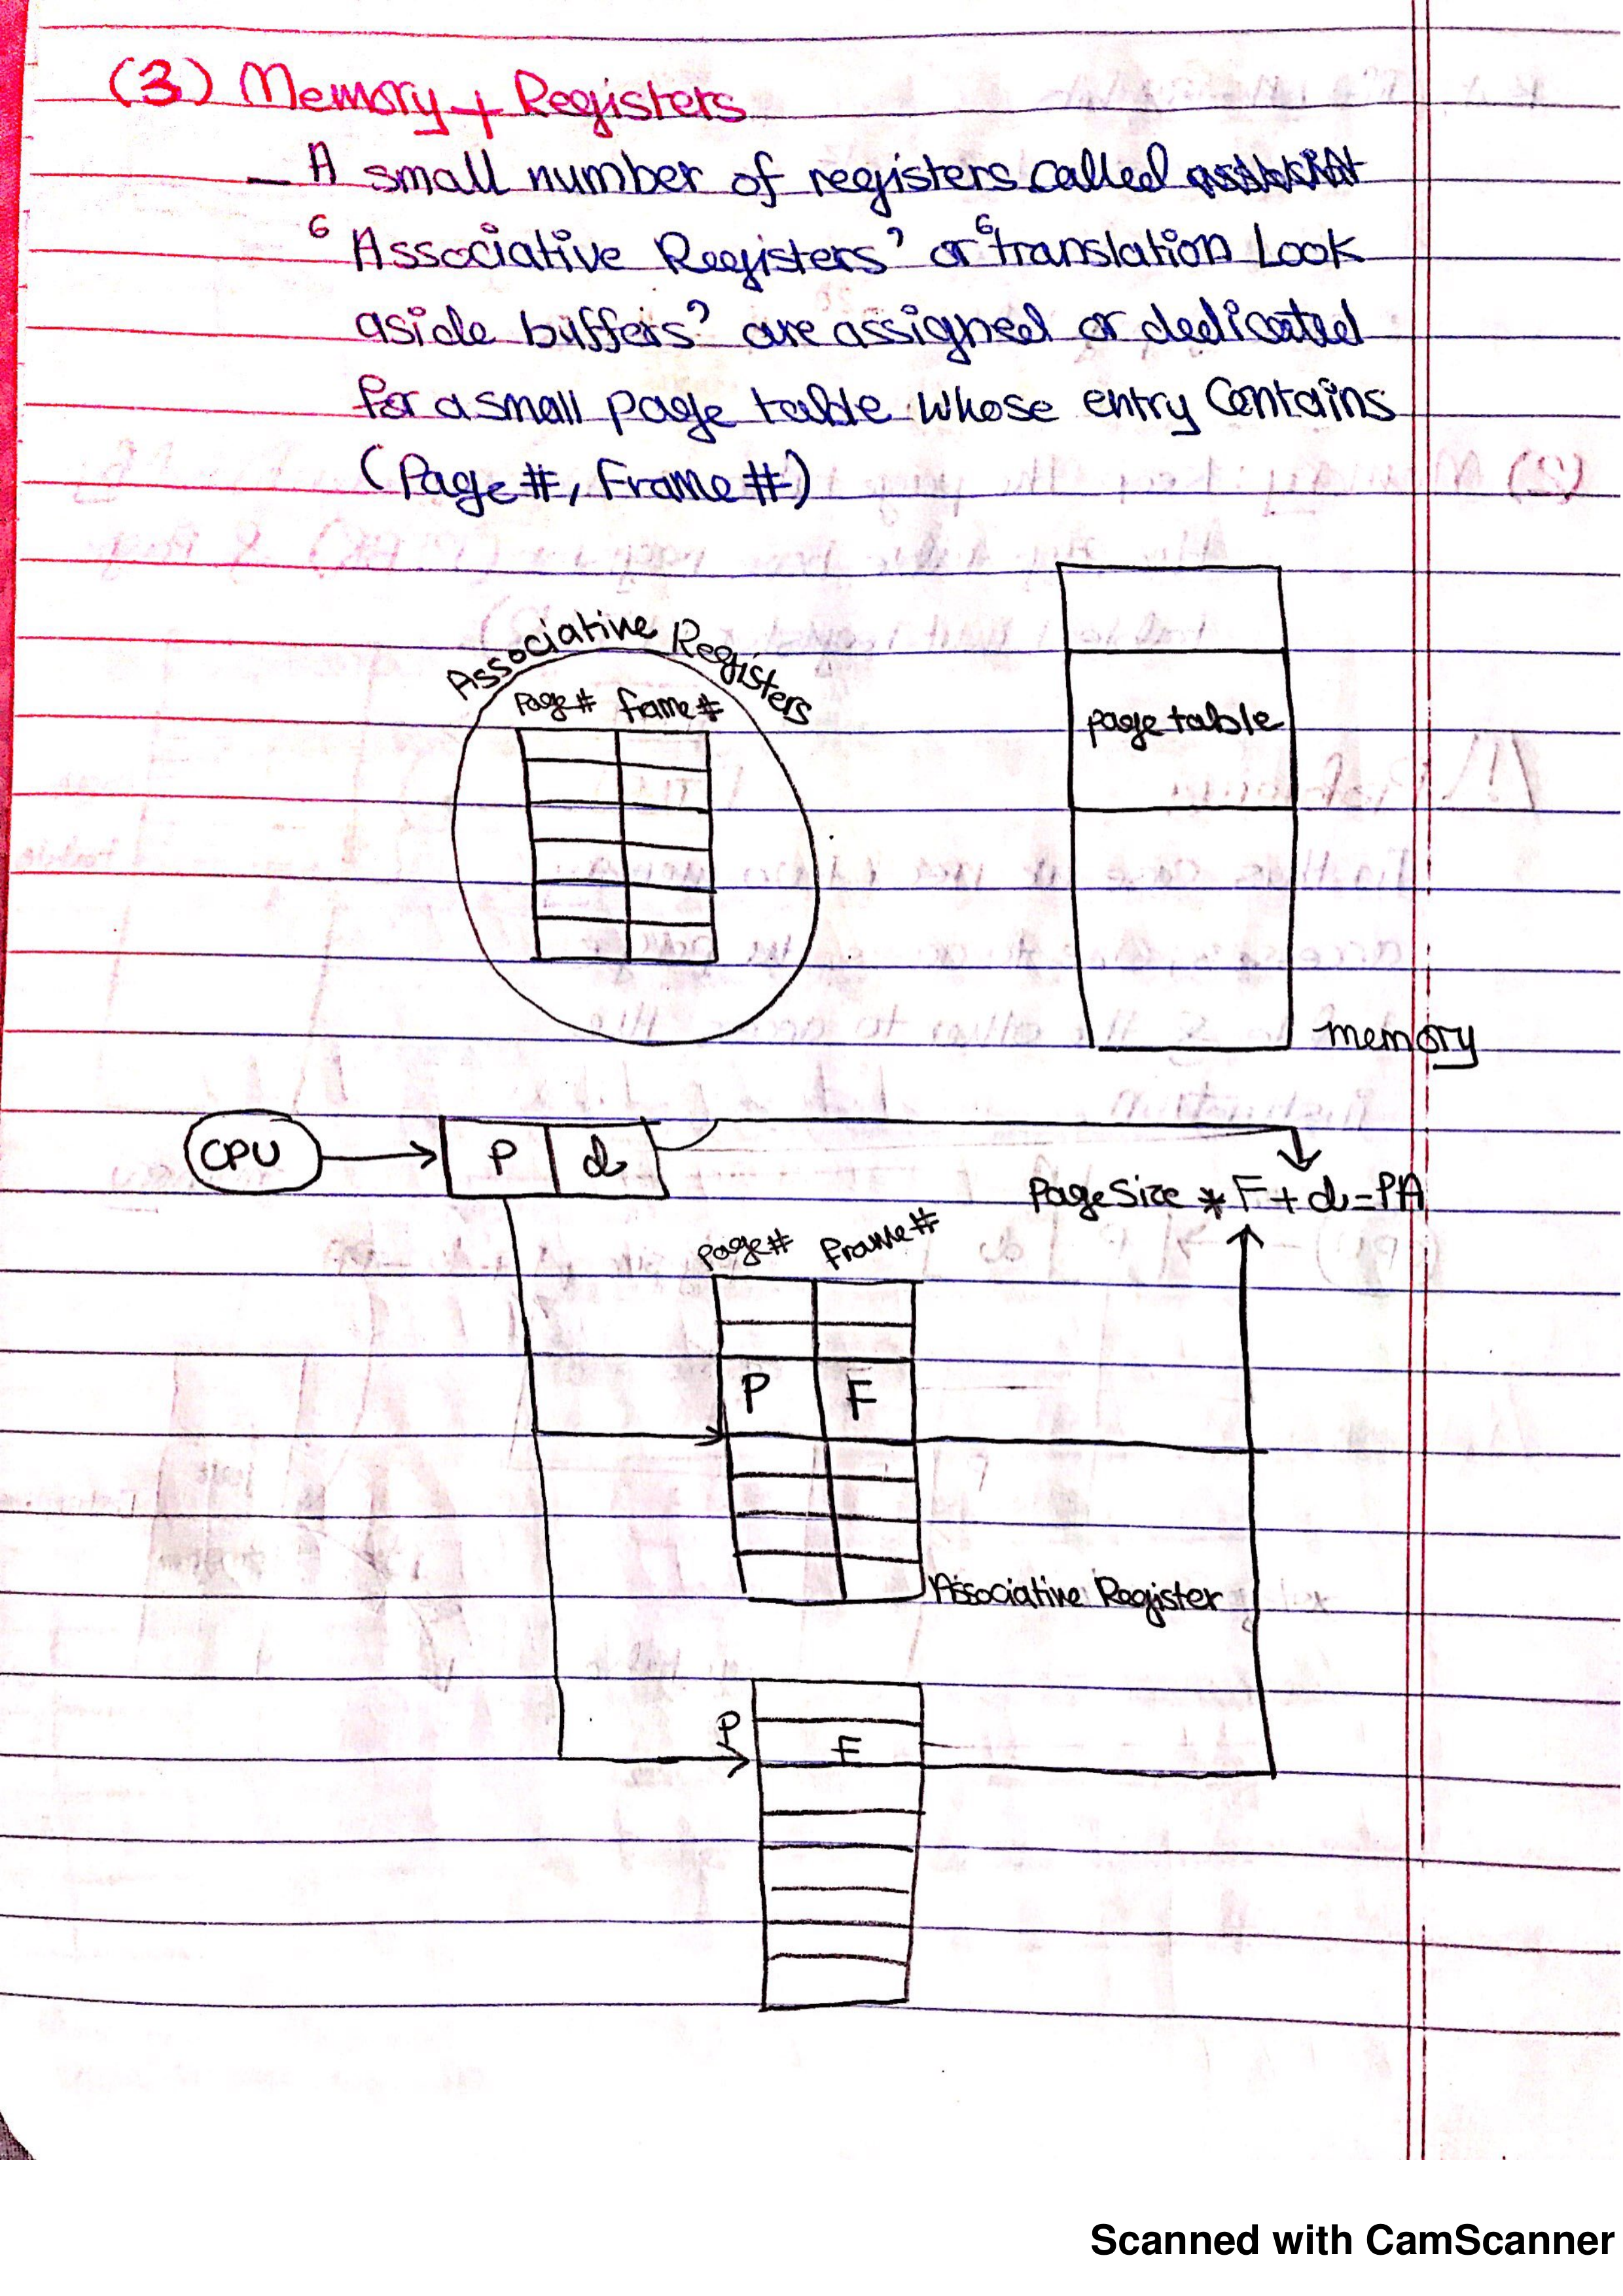 (3) Memory + Registers
– A small number of registers called
‘Associative Registers’ or ‘translation Look
aside buffers’ are assigned or dedicated
for a small page table whose entry Contains
(Page #, Frame #)
Associative Registers
Page # frame #
page table
memory
CPU
P d
Page Size * F + d = PA
page # frame #
P F
Associative Register
P
F
Scanned with CamScanner